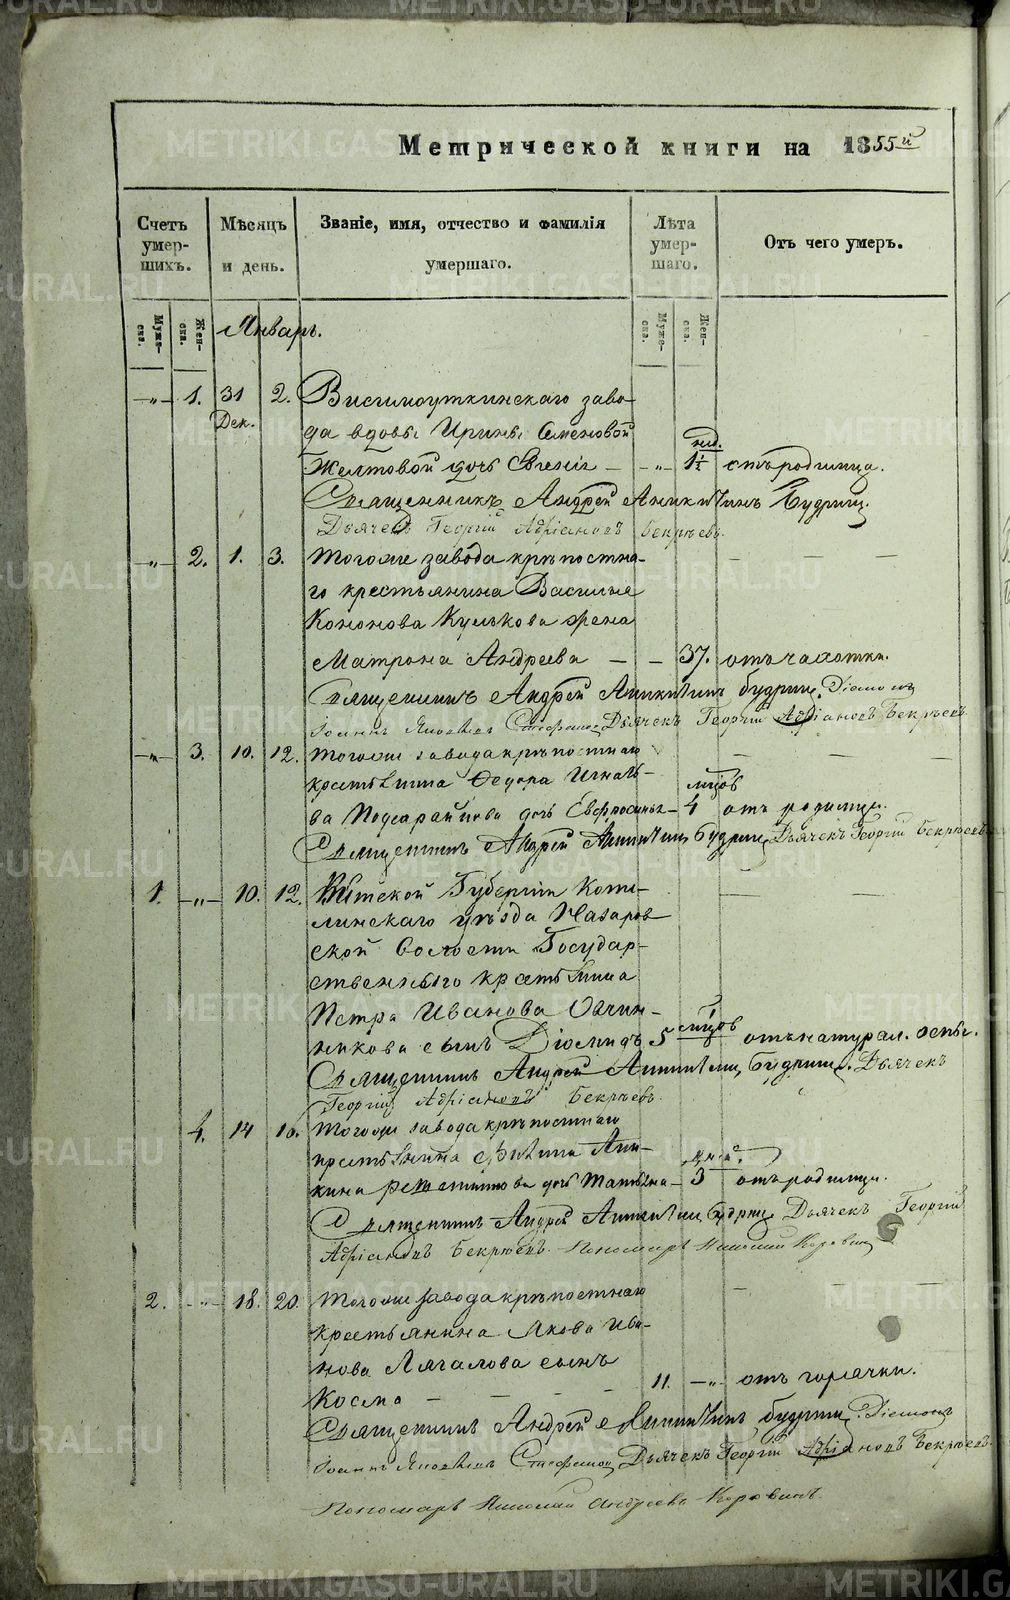 METRIKI.GASO-URAL.RU
Метрической книги на 1855й
Счетъ умер-шихъ.
Мѣсяцъ и день.
Званіе, имя, отчество и фамилія умершаго.
Лѣта умер-шаго.
Отъ чего умеръ.
Муже-ска.
Жен-ска.
Январь.
Муже-ска.
Жен-ска.
-„- 1. 31 2. Висимоуткинскаго заво-
Дек. да вдовы Ирины Семеновой
нед.
Желтовой дочь Евгенія - -„- 1½ отъ родимца.
Священникъ Андрей Аникитинъ Будринъ.
Дьячекъ Георгій Адріановъ Бекрѣевъ.
-„- 2. 1. 3. Тогоже завода крѣпостна-
го крестьянина Василья
Кононова Кулькова жена
Матрона Андреева - - 37. отъ чахотки.
Священникъ Андрей Аникитинъ Будринъ. Діаконъ
Іоаннъ Яковлевъ Стефановъ Дьячекъ Георгій Адріановъ Бекрѣевъ
-„- 3. 10. 12. Тогоже завода крѣпостнаго
крестьянина Федора Игнать-
мцовъ
ва дочь Евфросинья - 4 отъ родимца.
Священникъ Андрей Аникитинъ Будринъ Дьячекъ Георгій Бекрѣевъ
1. -„- 10. 12. Вятской Губерніи Коте-
линскаго уѣзда Казаров-
ской Волости Государ-
ственнаго крестьянина
Петра Иванова Овчин-
мцовъ
никова сынъ Діомидъ 5 отъ натурал. оспы.
Священникъ Андрей Аникитинъ Будринъ. Дьячекъ
Георгій Адріановъ Бекрѣевъ.
4. 14 16. Тогоже завода крѣпостнаго
крестьянина Никиты Ани-
дней.
кина дочь Татьяна - 3 отъ родимца.
Священникъ Андрей Аникитинъ Будринъ Дьячекъ Георгій
Адріановъ Бекрѣевъ. Пономарь Николай Коровинъ
2. -„- 18. 20. Тогоже завода крѣпостнаго
крестьянина Якова Ива-
нова Лягалова сынъ
Косма - - - - 11. -„- отъ горячки.
Священникъ Андрей Аникитинъ Будринъ. Діаконъ
Іоаннъ Яковлевъ Стефановъ Дьячекъ Георгій Адріановъ Бекрѣевъ.
Пономарь Николай Андреевъ Коровинъ.